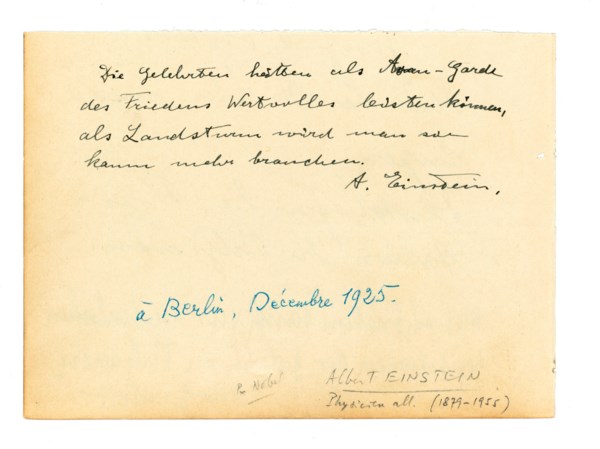 Die Gelehrten hätten als Avan-Garde
des Friedens Wertvolles leisten können,
als Landsturm wird man sie
kaum mehr brauchen.
A. Einstein.
à Berlin, Décembre 1925.
Nobel
Albert EINSTEIN
Physicien all. (1879-1955)